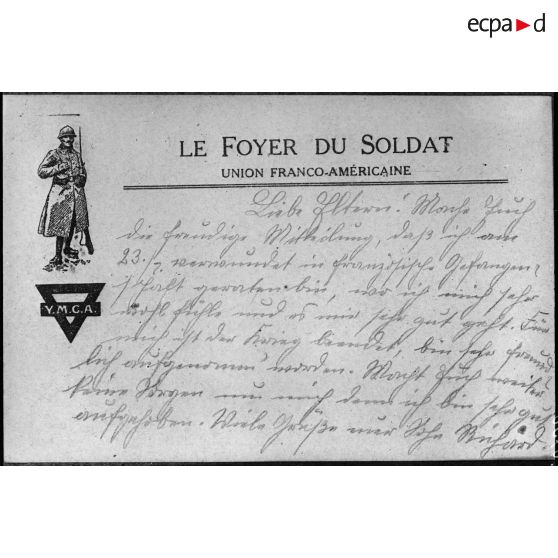 ecpad
LE FOYER DU SOLDAT
UNION FRANCO-AMÉRICAINE
Y.M.C.A.
Liebe Eltern! Mache Euch
die freudige Mitteilung, daß ich am
23./7. verwundet in französische Gefangen-
schaft geraten bin, wo ich mich sehr
wohl fühle und es mir sehr gut geht. Für
mich ist der Krieg beendet, bin sehr freund-
lich aufgenommen worden. Macht Euch weiter
keine Sorgen um mich denn ich bin sehr gut
aufgehoben. Viele Grüße euer Sohn Richard.